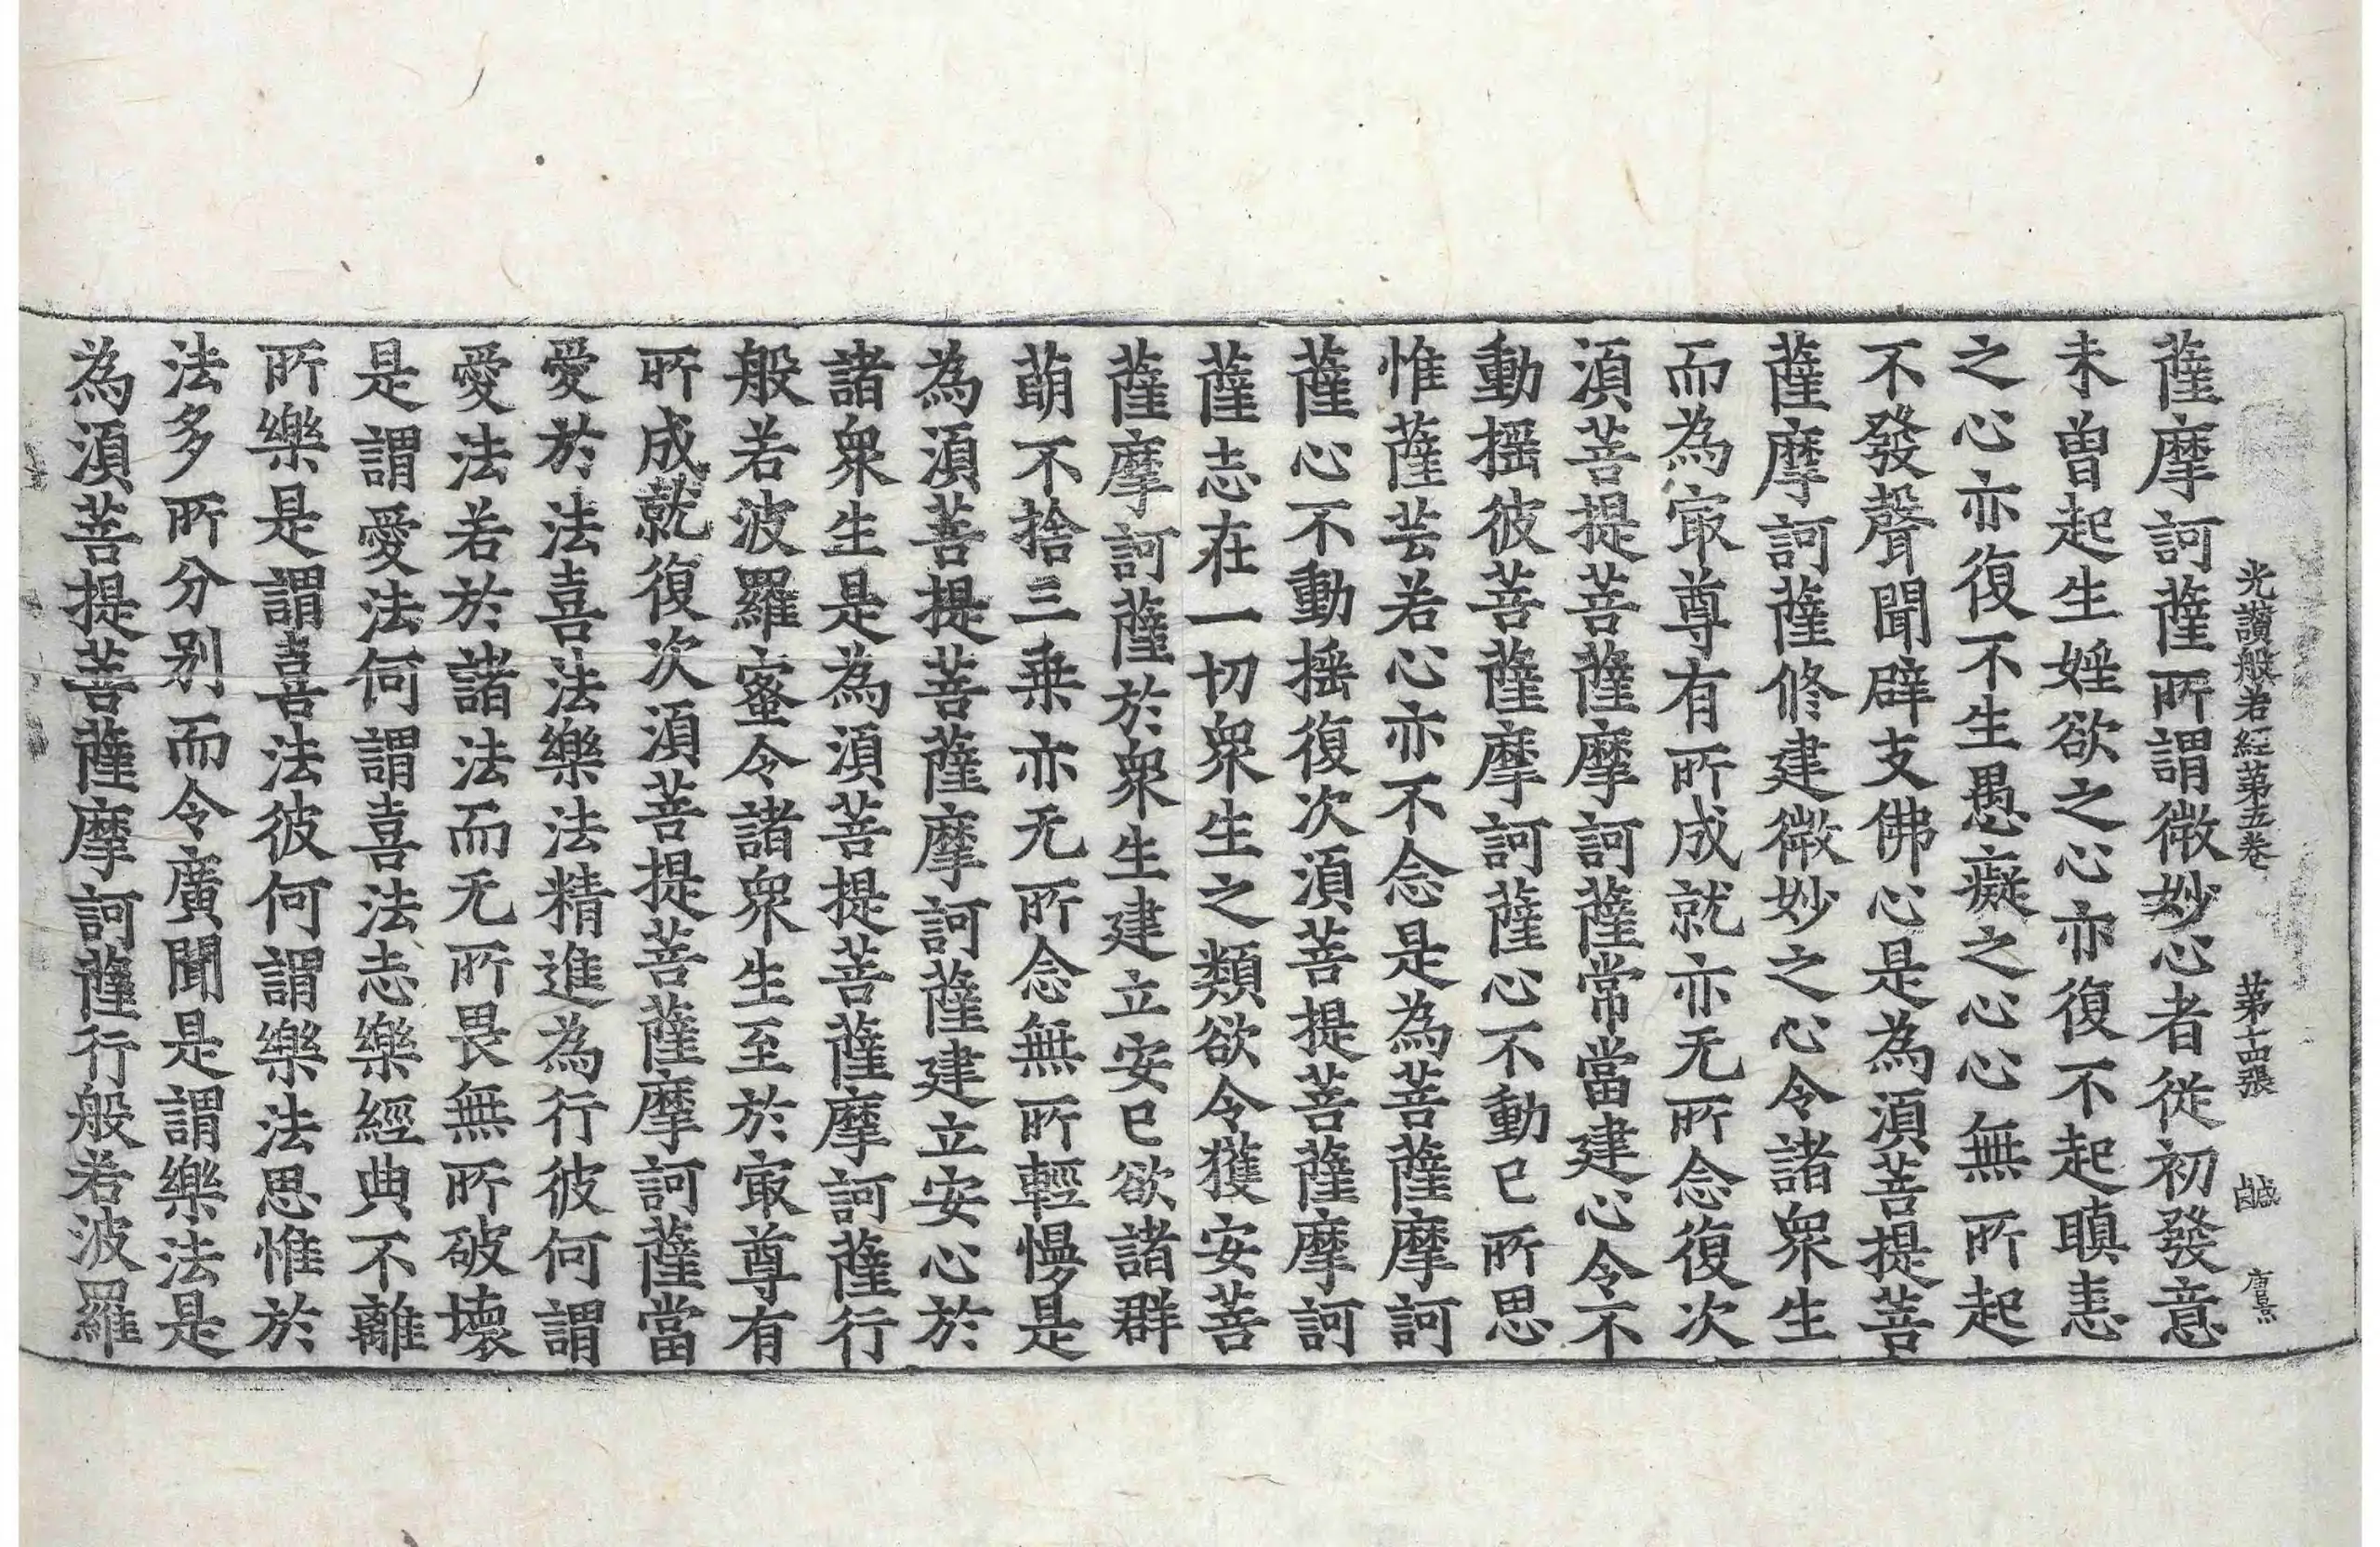 光讚般若經第五卷 第十四張 鹹
薩摩訶薩所謂微妙心者從初發意
未曾起生婬欲之心亦復不起瞋恚
之心亦復不生愚癡之心心無所起
不發聲聞辟支佛心是為湏菩提菩
薩摩訶薩修建微妙之心令諸衆生
而為㝡尊有所成就亦无所念復次
湏菩提菩薩摩訶薩常當建心令不
動摇彼菩薩摩訶薩心不動已所思
惟薩芸若心亦不念是為菩薩摩訶
薩心不動摇復次湏菩提菩薩摩訶
薩志在一切衆生之類欲令獲安菩
薩摩訶薩於衆生建立安已欲諸群
萌不捨三乗亦无所念無所輕慢是
為湏菩提菩薩摩訶薩建立安心於
諸衆生是為湏菩提菩薩摩訶薩行
般若波羅蜜令諸衆生至於㝡尊有
所成就復次湏菩提菩薩摩訶薩當
愛於法喜法樂法精進為行彼何謂
愛法若於諸法而无所畏無所破壞
是謂愛法何謂喜法志樂經典不離
所樂是謂喜法彼何謂樂法思惟於
法多所分别而令廣聞是謂樂法是
為湏菩提菩薩摩訶薩行般若波羅